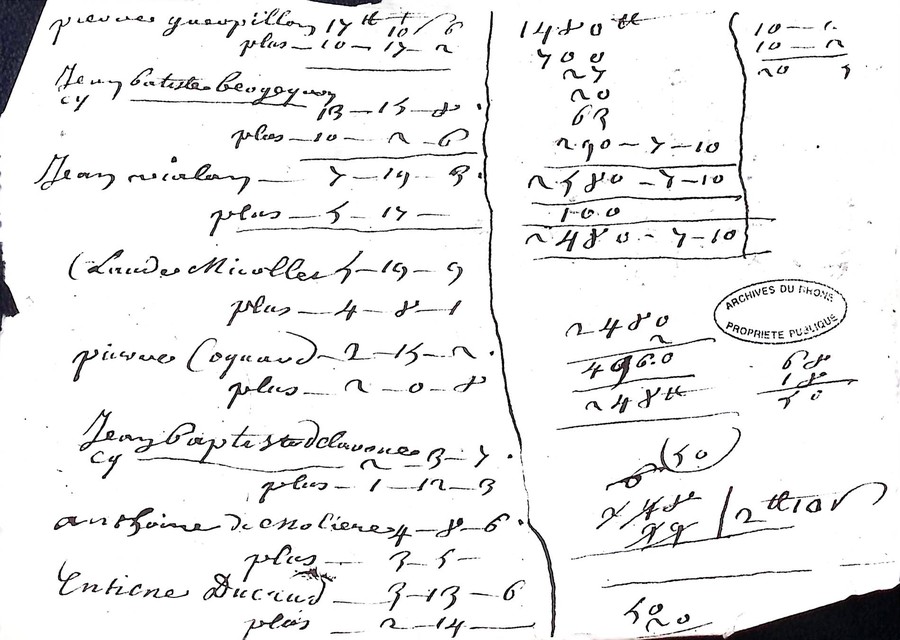 pierre gueupillon 17 tt 10 s 6
plus — 10 — 17 — 2
Jean batiste
cy 13 — 15 — 8
plus — 10 — 2 — 6
Jean violay — 7 — 19 — 3
plus — 5 — 17 —
Claude Micollet 5 — 19 — 9
plus — 4 — 8 — 1
pierre Coquard — 2 — 15 — 2
plus — 2 — 0 — 8
Jean baptiste
cy 2 — 3 — 7
plus — 1 — 12 — 3
anthoine de molieres 4 — 8 — 6
plus — 3 — 5 —
Entiene Ducrud — 3 — 13 — 6
plus — 2 — 14 —
1480 tt
700
27
20
63
290 — 7 — 10
2580 — 7 — 10
100
2480 — 7 — 10
2480
2
4960
248 tt
50
248
2 tt 10 s
50
20
10 —
10 —
20 5
ARCHIVES DU RHONE
PROPRIETE PUBLIQUE
68
18
50